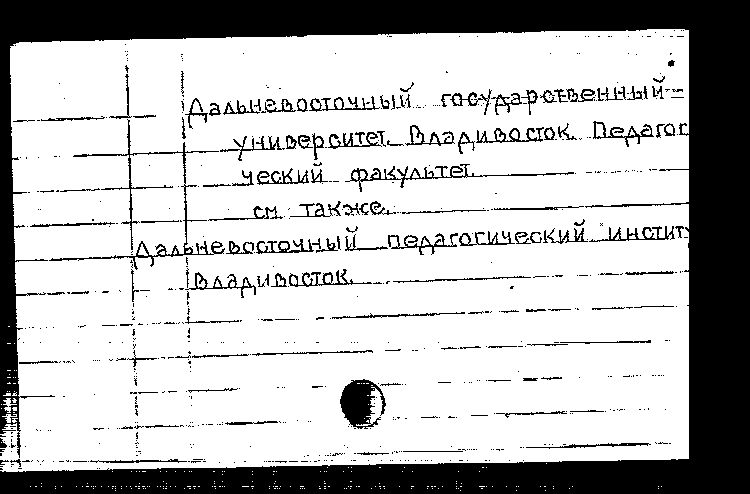 Дальневосточный государственный
университет. Владивосток. Педагог
ческий факультет.
см. также.
Дальневосточный педагогический институ
Владивосток.